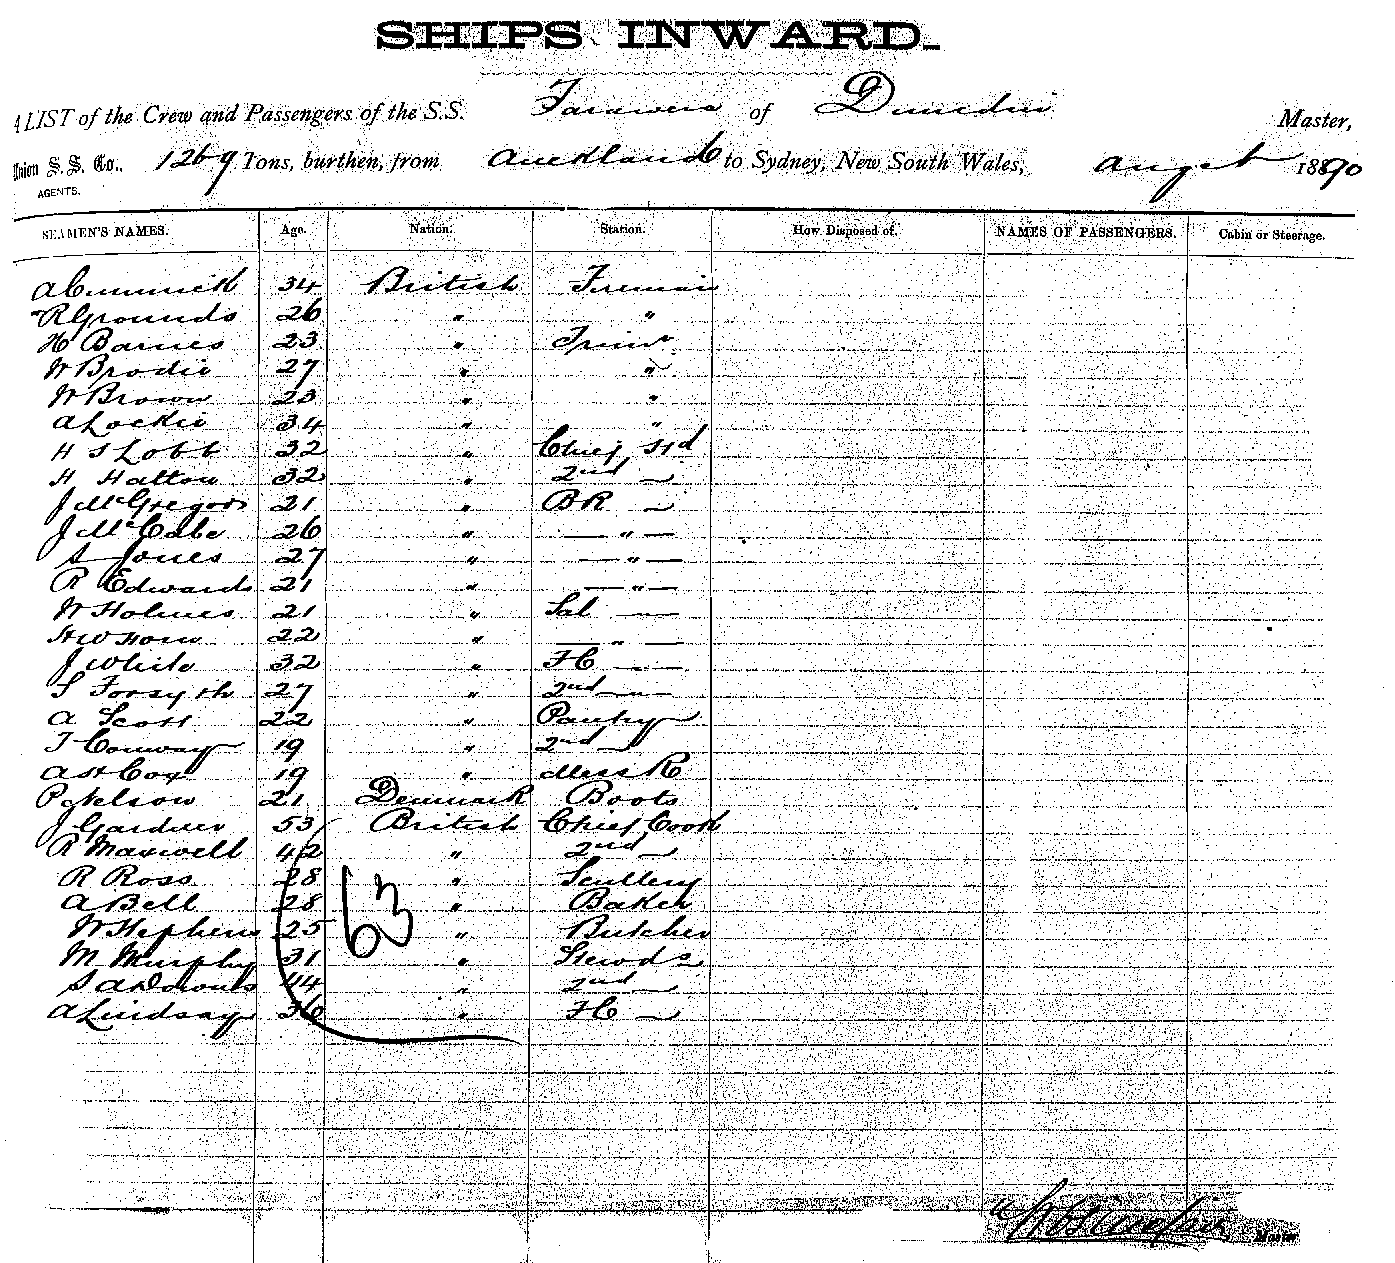 SHIPS INWARD.
A LIST of the Crew and Passengers of the S.S. Tarawera of Dunedin Master,
Union S. S. Co., 1269 Tons, burthen, from Auckland to Sydney, New South Wales, 1890
AGENTS.
SEAMEN'S NAMES. Age. Nation. Station. How Disposed of. NAMES OF PASSENGERS. Cabin or Steerage.
34 British Fireman
R Grounds 26 " "
H Barnes 23 " Trimr
W Brodie 27 " "
W Brown 23 " "
A Lockie 34 " "
H S Lobb 32 " Chief Std
H Hatton 32 " 2nd —
J McGregor 21 " BR —
J McCabe 26 " — " —
S Jones 27 " — " —
R Edwards 21 " — " —
W Holmes 21 " Sal —
H W Horn 22 " — " —
J White 32 " FC —
S Forsyth 27 " 2nd —
A Scott 22 " Pantry —
T Conway 19 " 2nd —
A H Cox 19 " Mess R
P Nelson 21 Denmark Boots
J Gardner 53 British Chief Cook
R Maxwell 42 " 2nd —
R Ross 28 " Scullery
A Bell 28 " Baker
W Stephens 25 " Butcher
63
M Murphy 31 " Stewds
44 " 2nd —
A Lindsay 36 " FC —
Master